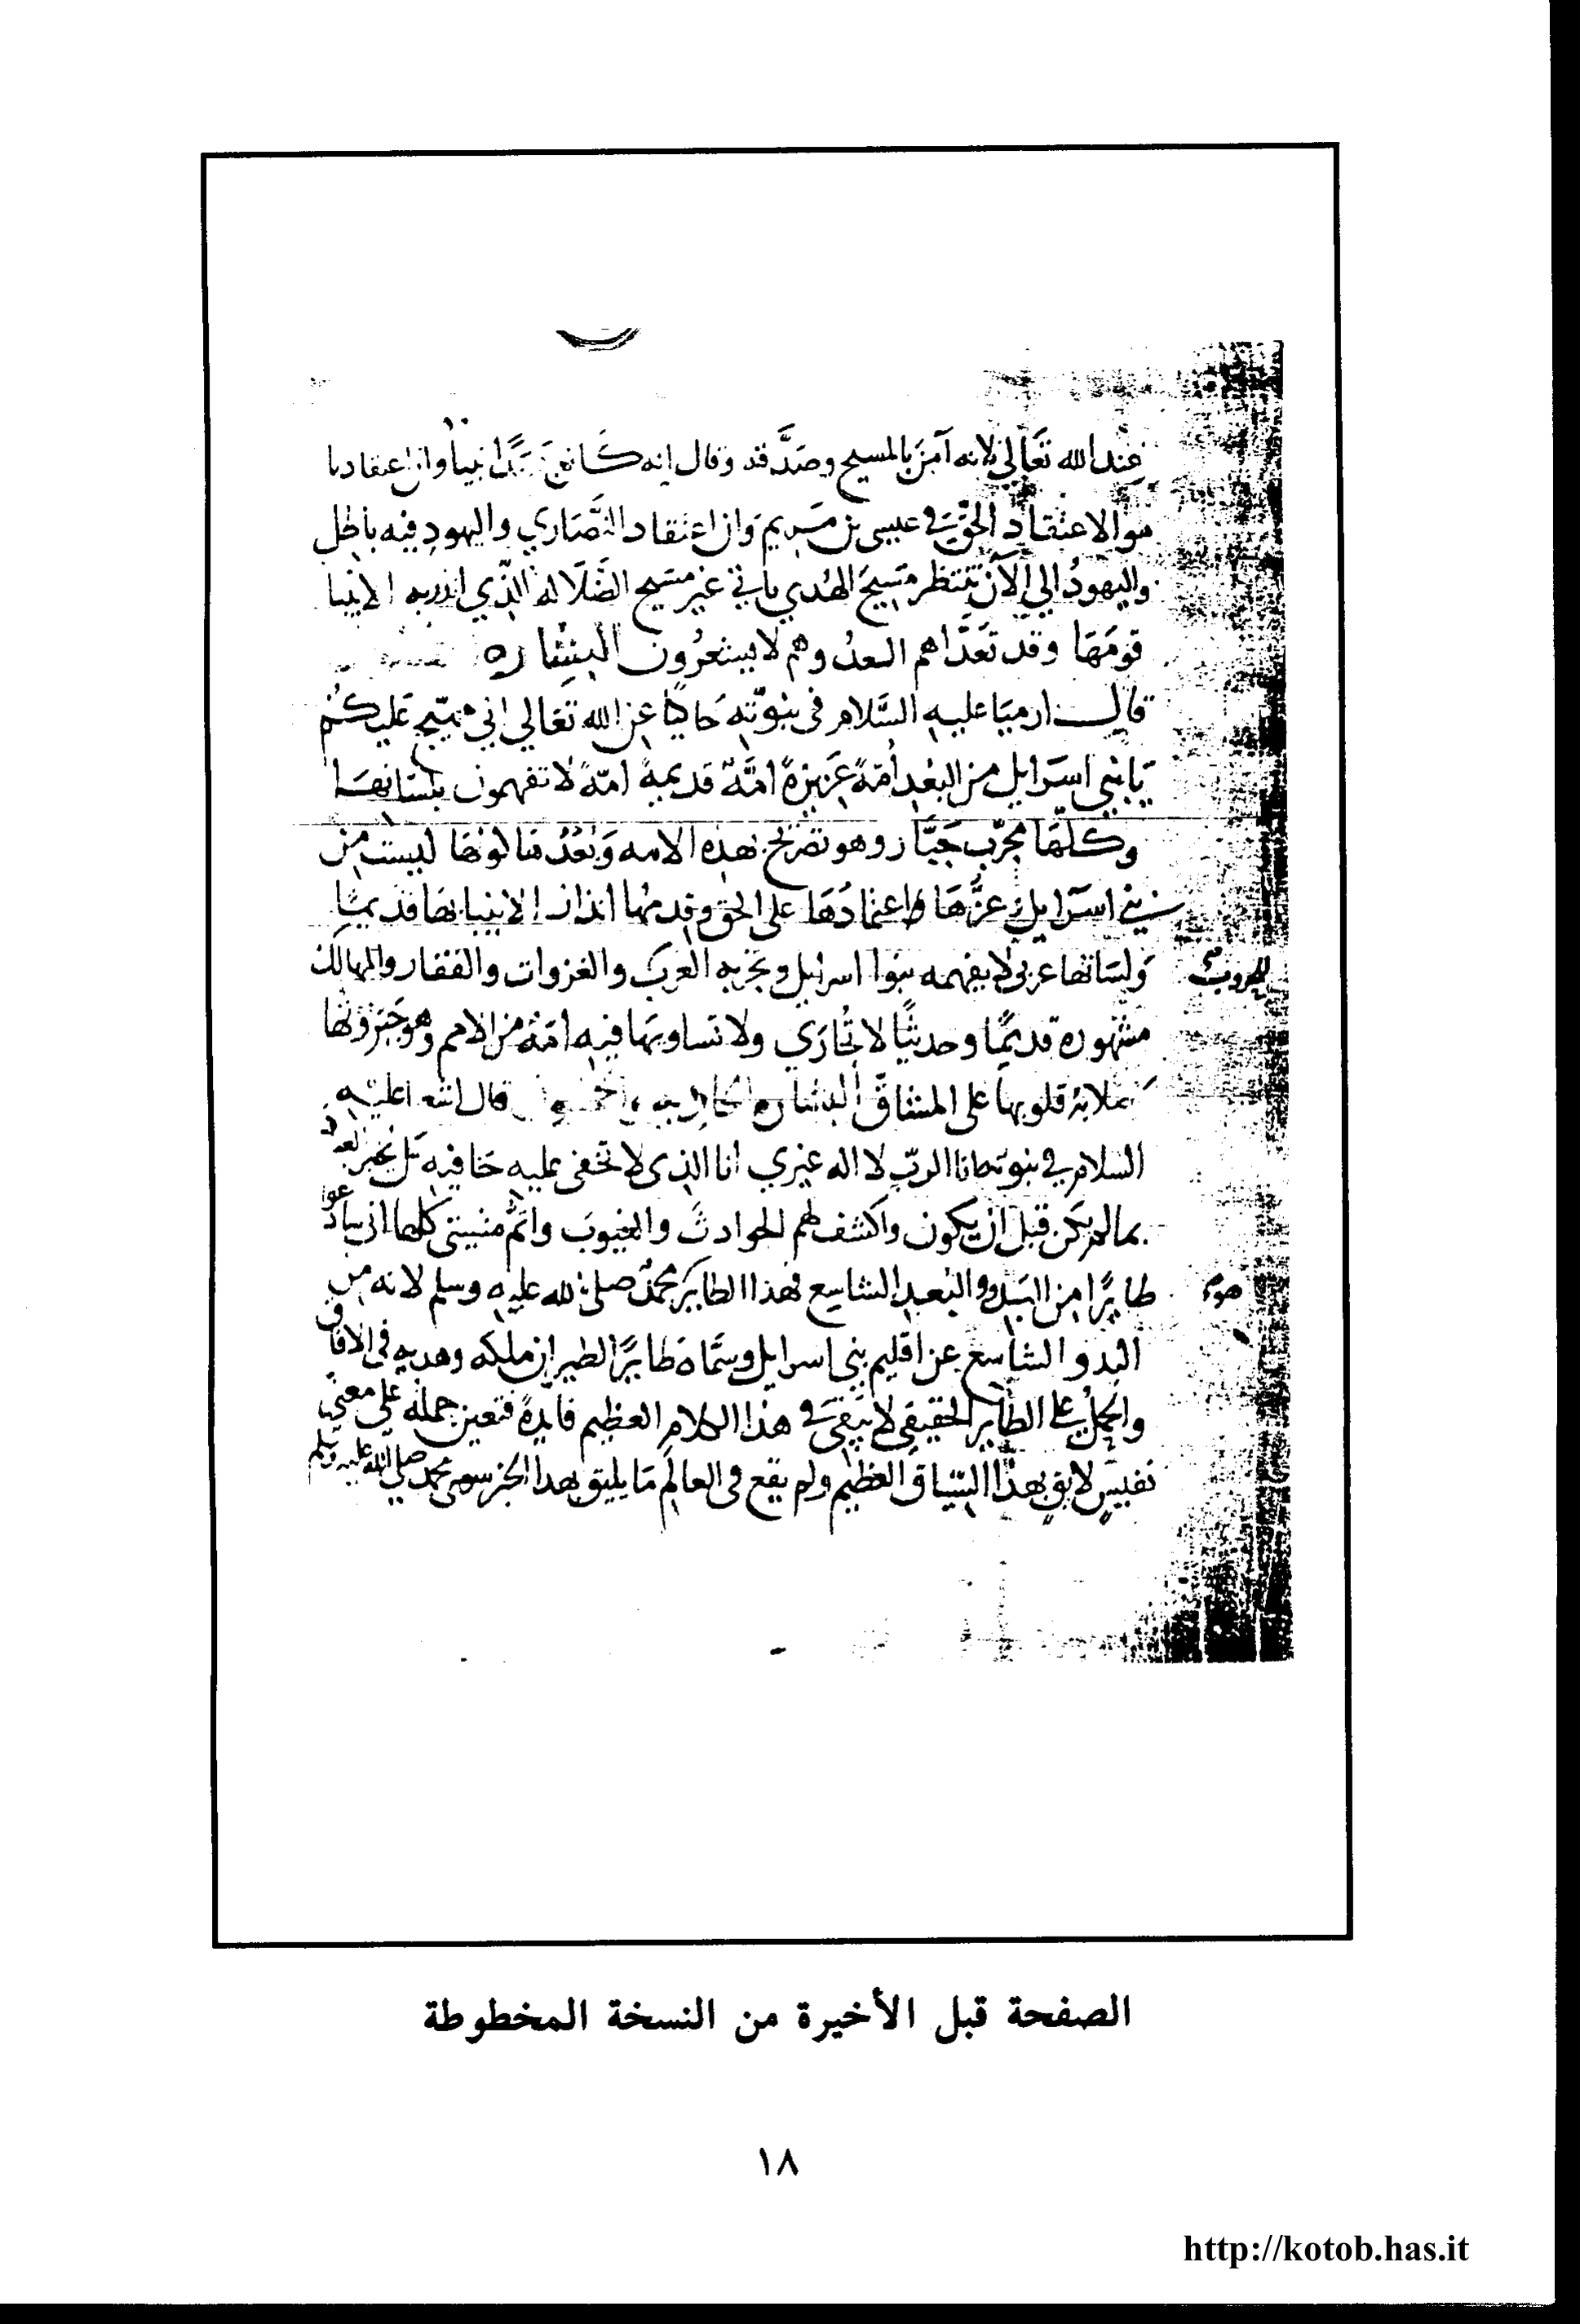 عند الله تعالي لانه آمن بالمسيح وصدَّقه وقال انه كان نبيا وان اعتقادنا
هو الاعتقاد الحق في عيسى بن مريم وان اعتقاد النصاري واليهود فيه باطل
واليهودُ الي الآن تنتظر مسيح الهدي ياتي غير مسيح الضلاله الذّي انذر به الانبيا
قومَهَا وقد تعدَّاهم السعدُ وهم لا يشعرُون البشاره
قال ارميا عليه السَّلام في نبوّته حاكيًا عن الله تعالي اني مهيّج عليكم
يا بني اسرايل من البعد أمّةً عزيزةً امَّةً قديمةً امّةً لا تفهمون بلسانها
وكلّها مجرّب جبَّار وهو تصريح بهذه الامه وبُعْدُها لونها ليست من
بني اسرايل وعزُّهَا واعتمادُهَا على الحق وقدمُها انذار الانبيا بها قديمًا
ولسانها عربي لا يفهمه بنوا اسرايل وتجربه العرب والغزوات والقفار والمهالك
للحروب صح
مشهوره قديمًا وحديثًا لا تُجارَي ولا تساويها فيه أمّة من الامم وهو جبروتها
صلابة قلوبها على المشاقّ البشاره قال اشعيا عليه
السلام في نبوته انا الربّ لا اله غيري انا الذي لا تخفى عليه خافيه بل نخبر
بمالم يكن قبل ان يكون واكشف لهم الحوادث والغيوب واتمُّ مشيتي كلها اني سادعو
طايرًا من البدو والبعد الشاسع فهذا الطاير محمدٌ صلى الله عليه وسلم لانه من
البدو الشاسع عن اقليم بني اسرايل وسمّاه طايرًا لطيران ملكه وهديه في الآفاق
والحمل على الطاير الحقيقي لا يبقي في هذا الكلام العظيم فايدةً فتعين حمله على معني
نفيسٍ لايقٍ بهذا السّياق العظيم ولم يقع في العالم ما يليق بهذا الخبر سوى محمد صلى الله عليه وسلم
الصفحة قبل الأخيرة من النسخة المخطوطة
١٨
http://kotob.has.it